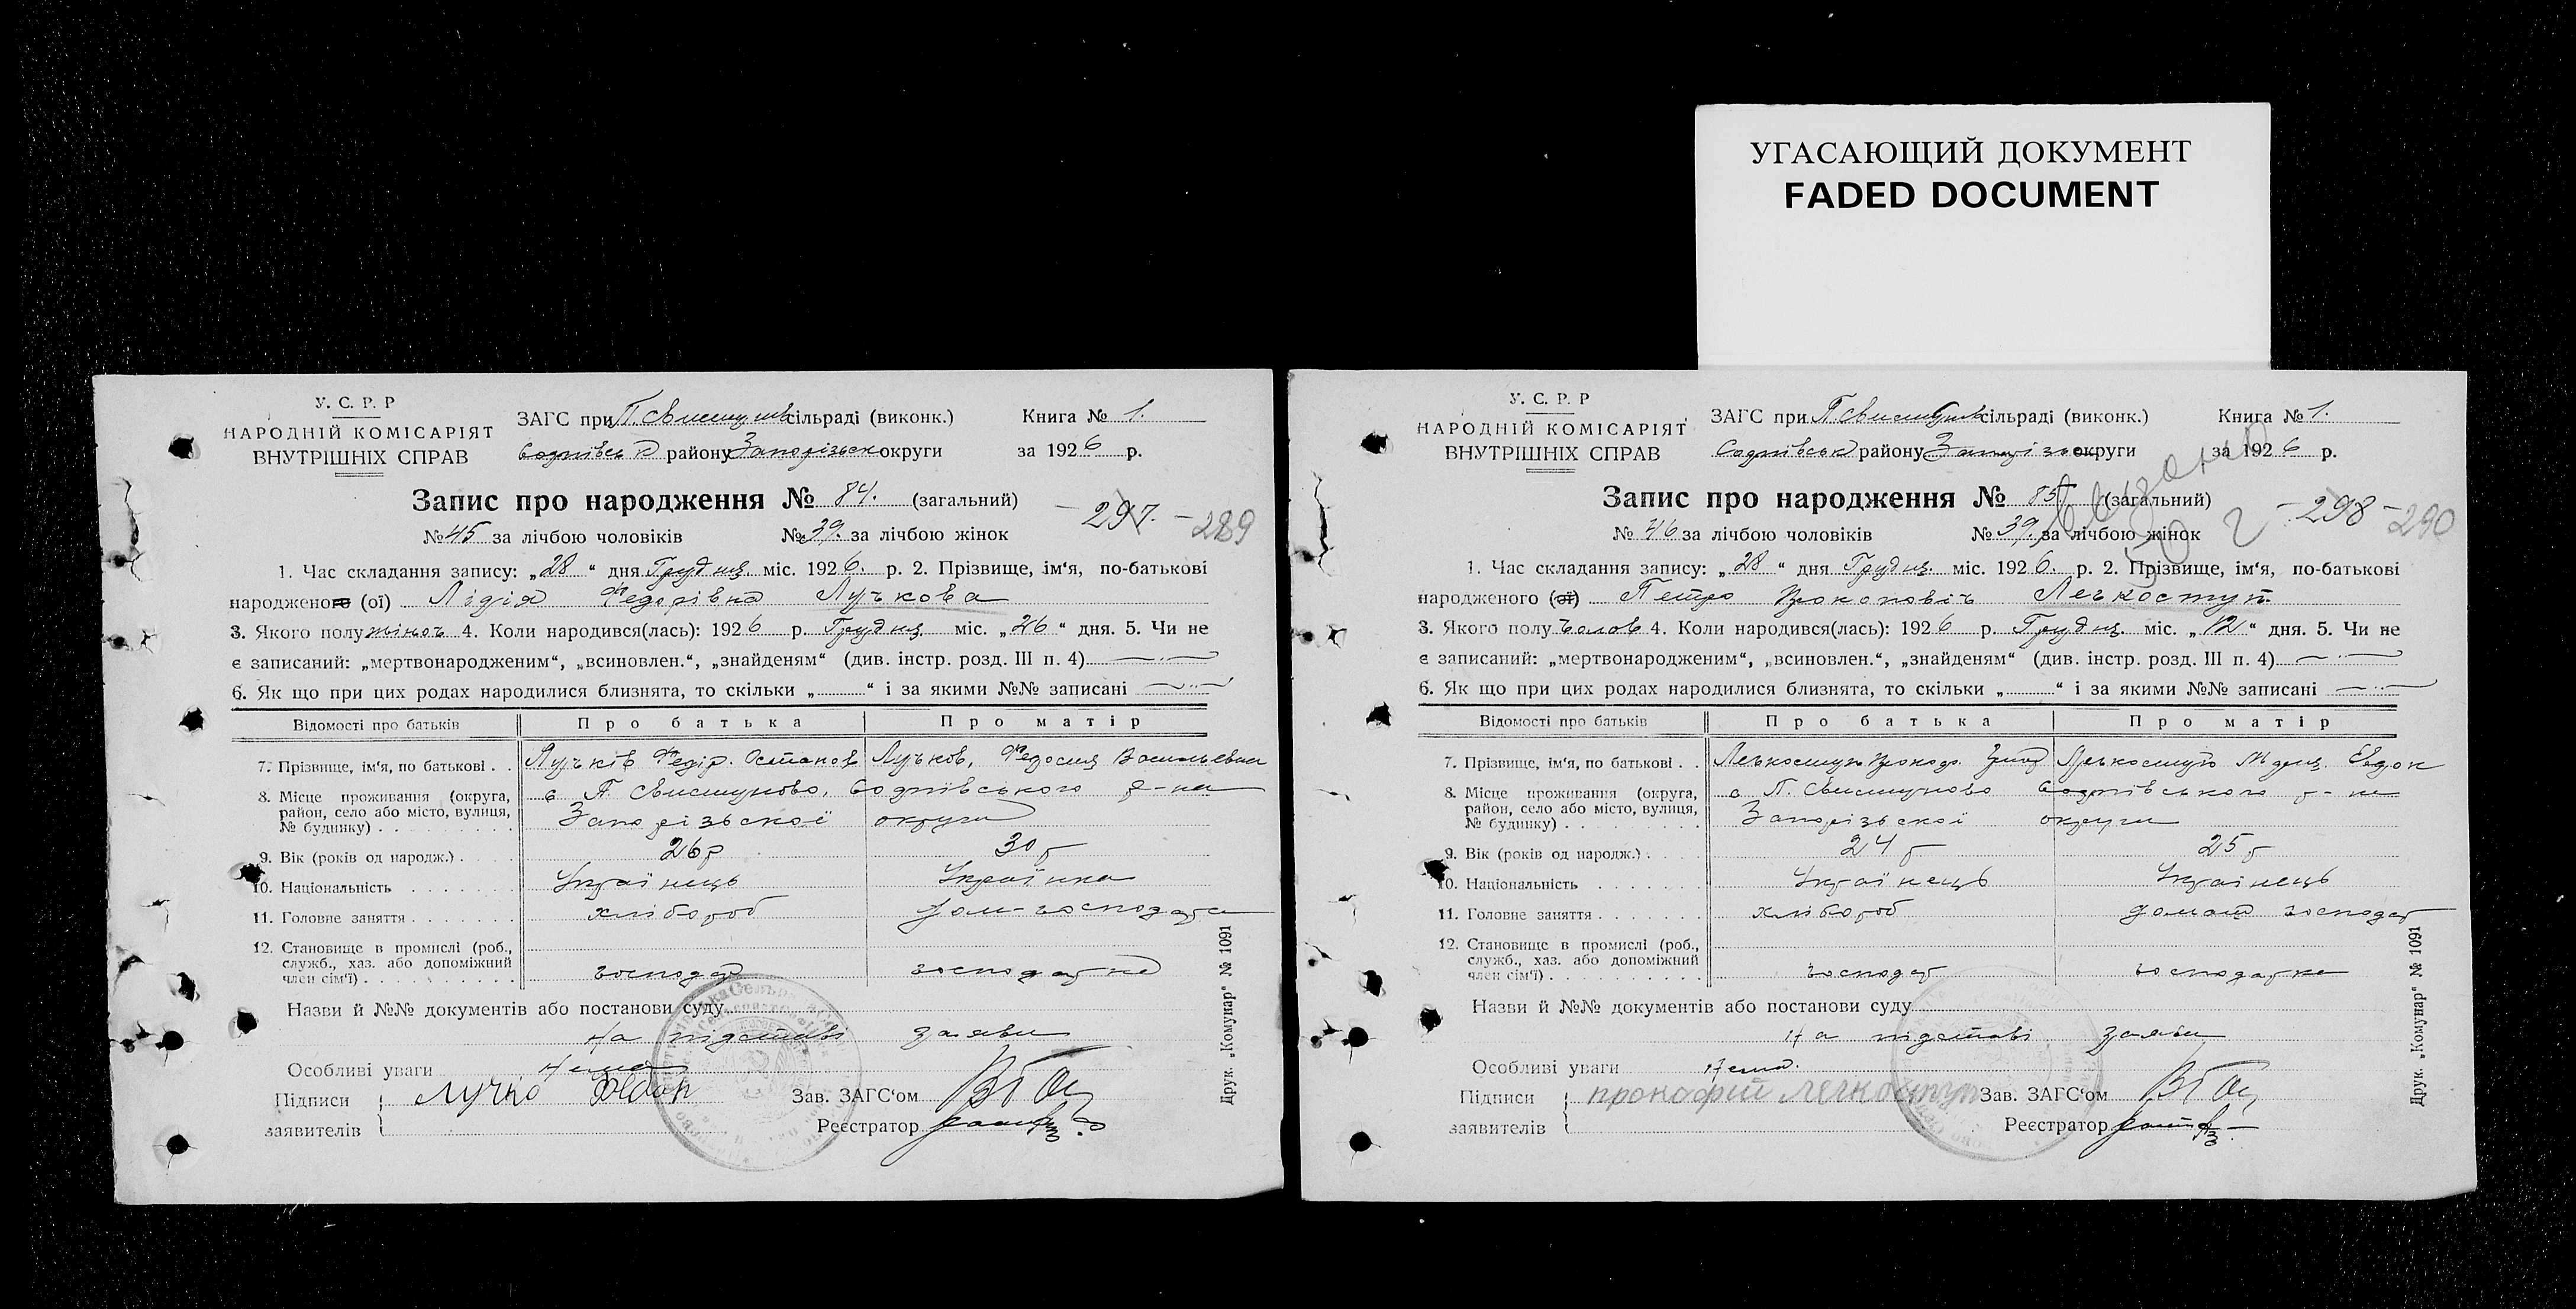 УГАСАЮЩИЙ ДОКУМЕНТ
FADED DOCUMENT
У. С. Р. Р
НАРОДНІЙ КОМІСАРІЯТ
ВНУТРІШНІХ СПРАВ
ЗАГС при П Свистунів сільраді (виконк.)
району Запорізьк округи
Книга № 1.
за 1926 р.
Запис про народження № 84. (загальний)
297. - 289
№ 45 за лічбою чоловіків № 39. за лічбою жінок
1. Час складання запису: „28" дня Грудня міс. 1926. р. 2. Прізвище, ім'я, по-батькові
народженого (ої) Лідія Федорівна Лучкова
3. Якого полу жіноч 4. Коли народився(лась): 1926 р. Грудня міс. „26" дня. 5. Чи не
є записаний: „мертвонародженим", „всиновлен.", „знайденям" (див. інстр. розд. III п. 4)
6. Як що при цих родах народилися близнята, то скільки „ " і за якими №№ записані
Відомості про батьків Про батька Про матір
7. Прізвище, ім'я, по батькові . . Лучків Федір. Остапов Лучков, Федосия Васильевна
8. Місце проживання (округа, район, село або місто, вулиця, № будинку) с П. Свистуново, р-на
Запорізької округи
9. Вік (років од народж.) 26 р 30 р
10. Національність Українець Українка
11. Головне заняття хлібороб дом-господарка
12. Становище в промислі (роб., служб., хаз. або допоміжний член сім'ї) господар господарка
Назви й №№ документів або постанови суду
на підставі заяви
Особливі уваги Нема
Підписи заявителів Лучко
Зав. ЗАГС'ом
Реєстратор
Друк. „Комунар" № 1091
У. С. Р. Р
НАРОДНІЙ КОМІСАРІЯТ
ВНУТРІШНІХ СПРАВ
ЗАГС при П. Свистунів сільраді (виконк.)
району округи
Книга № 1.
за 1926 р.
Запис про народження № 85. (загальний)
- 298 - 290
№ 46 за лічбою чоловіків № 39. за лічбою жінок
1. Час складання запису: „28" дня Грудня міс. 1926. р. 2. Прізвище, ім'я, по-батькові
народженого (ої) Петро Прокопович Легкоступ.
3. Якого полу чолов 4. Коли народився(лась): 1926 р. Грудня міс. „12" дня. 5. Чи не
є записаний: „мертвонародженим", „всиновлен.", „знайденям" (див. інстр. розд. III п. 4)
6. Як що при цих родах народилися близнята, то скільки „ " і за якими №№ записані
Відомості про батьків Про батька Про матір
7. Прізвище, ім'я, по батькові . . Легкоступ Прокоп. Легкоступ Евдок
8. Місце проживання (округа, район, село або місто, вулиця, № будинку) с П. Свистуново р-на
Запорізької округи
9. Вік (років од народж.) 24 р 25 р
10. Національність Українець Українець
11. Головне заняття хлібороб домаш господар
12. Становище в промислі (роб., служб., хаз. або допоміжний член сім'ї) господар господарка
Назви й №№ документів або постанови суду
На підставі заяви
Особливі уваги Нема.
Підписи заявителів прокофий легкоступ
Зав. ЗАГС'ом
Реєстратор
Друк. „Комунар" № 1091